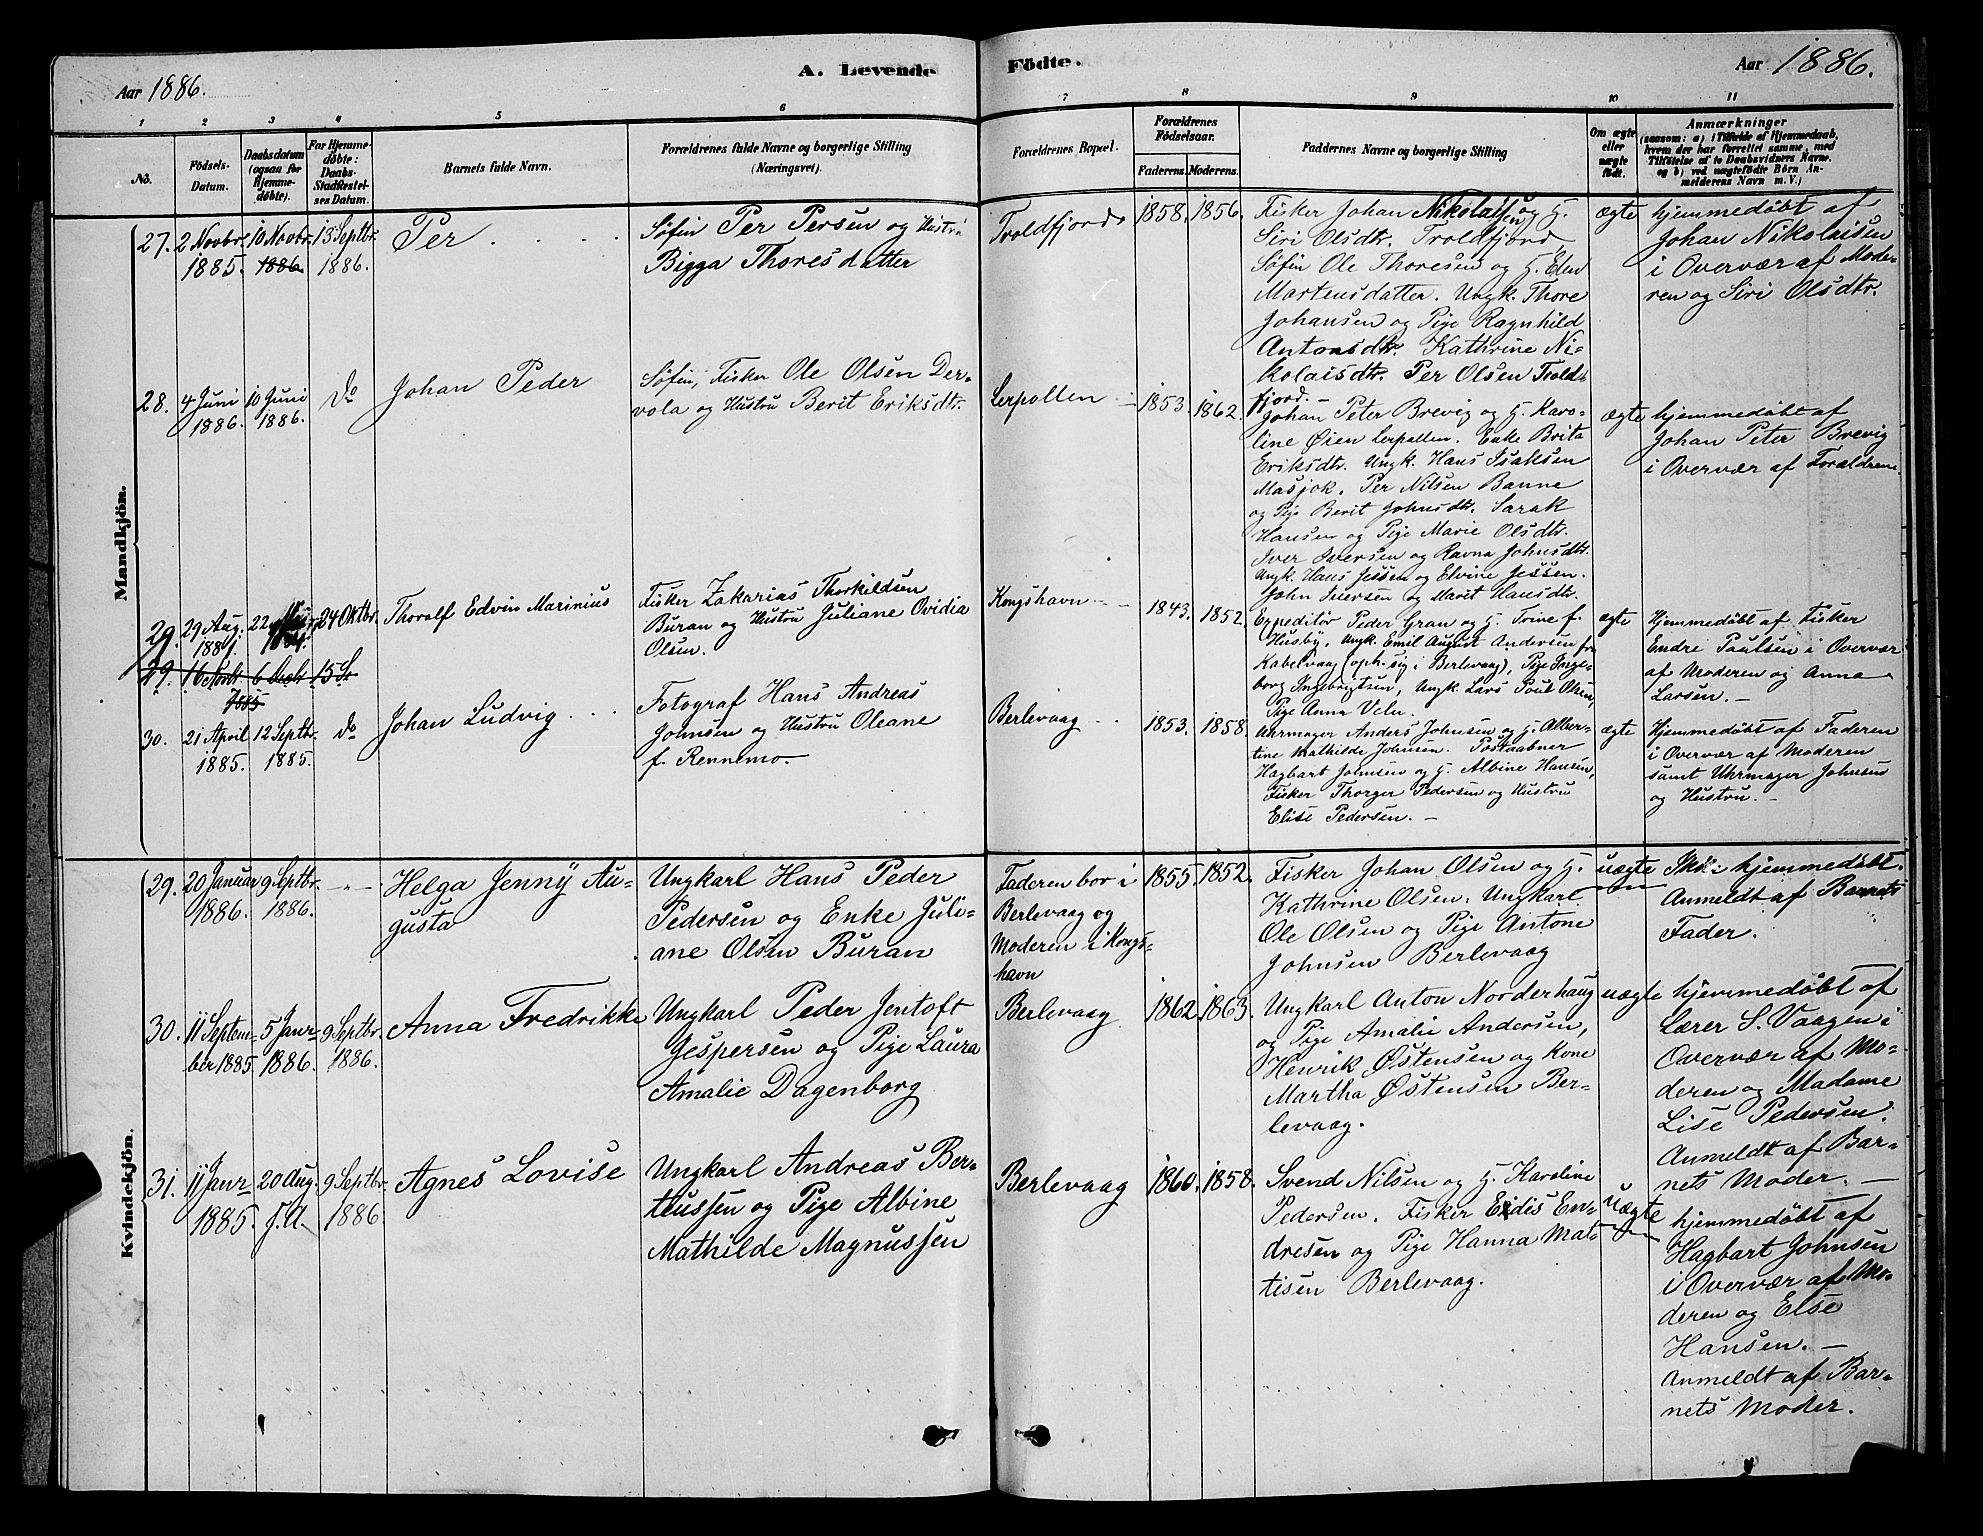 Aar 1886.
A. Levende
Födte.
Aar 1886.
1 2 3 4 5 6 7 8 9 10 11
No.
Födsels-
Datum.
Daabsdatum
(ogsaa for
Hjemme-
döbte).
For Hjemme-
döbte:
Daabs-
Stadfæstel-
ses Datum.
Barnets fulde Navn.
Forældrenes fulde Navne og borgerlige Stilling
(Næringsvei).
Forældrenes Bopæl.
Forældrenes
Födselsaar.
Faderens. Moderens.
Faddernes Navne og borgerlige Stilling
Om ægte
eller
uægte
födt.
Anmærkninger
(saasom: a) i Tilfælde af Hjemmedaab,
hvem der har forrettet samme, med
Tilföielse af to Daabsvidners Navne,
og b) ved uægtefödte Börn An-
melderens Navn m. V.)
Mandkjön.
27.
2 Novbr.
1885.
10 Novbr.
1886.
13 Septbr.
1886.
Per
Søfin Per Persen og Hustru
Bigga Thoresdatter
Troldfjord
1858.
1856.
Fisker Johan Nikolaisen og H.
Siri Olsdtr. Troldfjord,
Søfin Ole Thoresen og H. Elen
Martensdatter. Ungk. Thore
Johansen og Pige Ragnhild
Antonsdtr. Kathrine Ni-
kolaisdtr. Per Olsen Trold-
fjord. -
ægte
hjemmedøbt af
Johan Nikolaisen
i Overvær af Mode-
ren og Siri Olsdtr.
28.
4 Juni
1886.
10 Juni
1886.
do
Johan Peder
Søfin, Fisker Ole Olsen Der-
vola og Hustru Berit Eriksdtr.
Lerpollen
1853.
1862.
Johan Peter Brevig og H. Karo-
line Øien Lerpollen. Enke Brita
Eriksdtr. Ungk. Hans Isaksen
Masjok. Per Nilsen Banne
og Pige Berit Johnsdtr. Sarak
Hansen og Pige Marie Olsdtr.
Iver Iversen og Ravna Johnsdtr.
Ungk. Hans Jessen og Elvine Jessen.
John Iversen og Marit Hansdtr.
ægte
hjemmedøbt af
Johan Peter Brevig
i Overvær af Forældrene
29.
29 Aug.
1881.
22
24 Oktbr.
Thoralf Edvin Marinius
Fisker Zakarias Thorkildsen
Buran og Hustru Juliane Ovidia
Olsen.
Kongshavn
1843.
1852.
Expeditør Peder Gran og H. Trine f.
Husby, Ungk. Emil August Andersen fra
Kabelvaag (oph. sig i Berlevaag), Pige Inge-
borg Ingebrigtsen, Ungk. Lars Poul Olsen,
Pige Anna Veln.
ægte
Hjemmedøbt af Fisker
Endre Paulsen i Overvær
af Moderen og Anna
Larsen. -
29.
1885
30.
21 April
1885.
12 Septbr.
1885.
do
Johan Ludvig
Fotograf Hans Andreas
Johnsen og Hustru Oleane
f. Rennemo.
Berlevaag
1853.
1858.
Uhrmager Anders Johnsen og H. Alber-
tine Mathilde Johnsen. Postaabner
Hagbart Johnsen og H. Albine Hansen,
Fisker Thorger Pedersen og Hustru
Elise Pedersen. -
ægte
Hjemmedøbt af Faderen
i Overvær af Moderen
samt Uhrmager Johnsen
og Hustru. -
Kvindekjön.
29.
20 Januar
1886.
9 Septbr.
1886.
- " -
Helga Jenny Au-
gusta
Ungkarl Hans Peder
Pedersen og Enke Juli-
ane Olsen Buran
Faderen bor i
Berlevaag og
Moderen i Kongs-
havn
1855.
1852.
Fisker Johan Olsen og H.
Kathrine Olsen. Ungkarl
Ole Olsen og Pige Antone
Johnsen Berlevaag
uægte
Ikke hjemmedøbt.
Anmeldt af Barnets
Fader.
30.
11 Septem-
ber 1885.
5 Janr
1886.
9 Septbr.
1886.
Anna Fredrikke
Ungkarl Peder Jentoft
Jespersen og Pige Laura
Amalie Dagenborg
Berlevaag
1862.
1863.
Ungkarl Anton Norderhaug
og Pige Amalie Andersen,
Henrik Østensen og Kone
Martha Østensen Ber-
levaag.
uægte
hjemmedøbt af
Lærer S. Vaagen i
Overvær af Mo-
deren og Madame
Lise Pedersen.
Anmeldt af Bar-
nets Moder. -
31.
11 Janr
1885.
20 Aug.
s. A.
9 Septbr.
1886.
Agnes Lovise
Ungkarl Andreas Ber-
teussen og Pige Albine
Mathilde Magnussen
Berlevaag
1860.
1858.
Svend Nilsen og H. Karoline
Pedersen. Fisker Eidis En-
dresen og Pige Hanna Mat-
tisen Berlevaag.
uægte
hjemmedøbt af
Hagbart Johnsen
i Overvær af Mo-
deren og Else
Hansen. -
Anmeldt af Bar-
nets Moder.